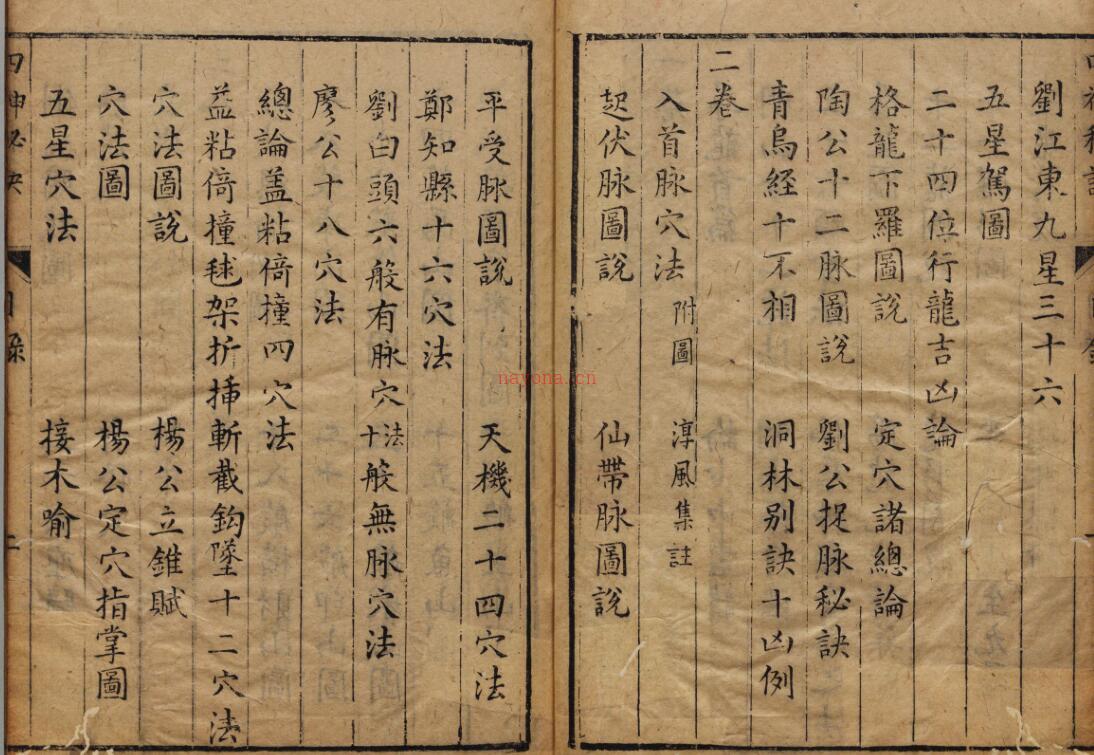 劉江東九星三十六
五星駕圖
二十四位行龍吉凶論
格龍下羅圖說 定穴諸總論
陶公十二脉圖說 劉公捉脉秘訣
青烏経十不相 洞林别訣十凶例
二卷
入首脉穴法 附圖 淳風集註
起伏脉圖說 仙帶脉圖說
平受脉圖說 天機二十四穴法
鄭知縣十六穴法
劉白頭六般有脉穴法十般無脉穴法
廖公十八穴法
總論盖粘倚撞四穴法
盖粘倚撞毬架折揷斬截鈎墜十二穴法
穴法圖說 楊公立錐賦
穴法圖 楊公定穴指掌圖
五星穴法 接木喻
目錄
nayona.cn